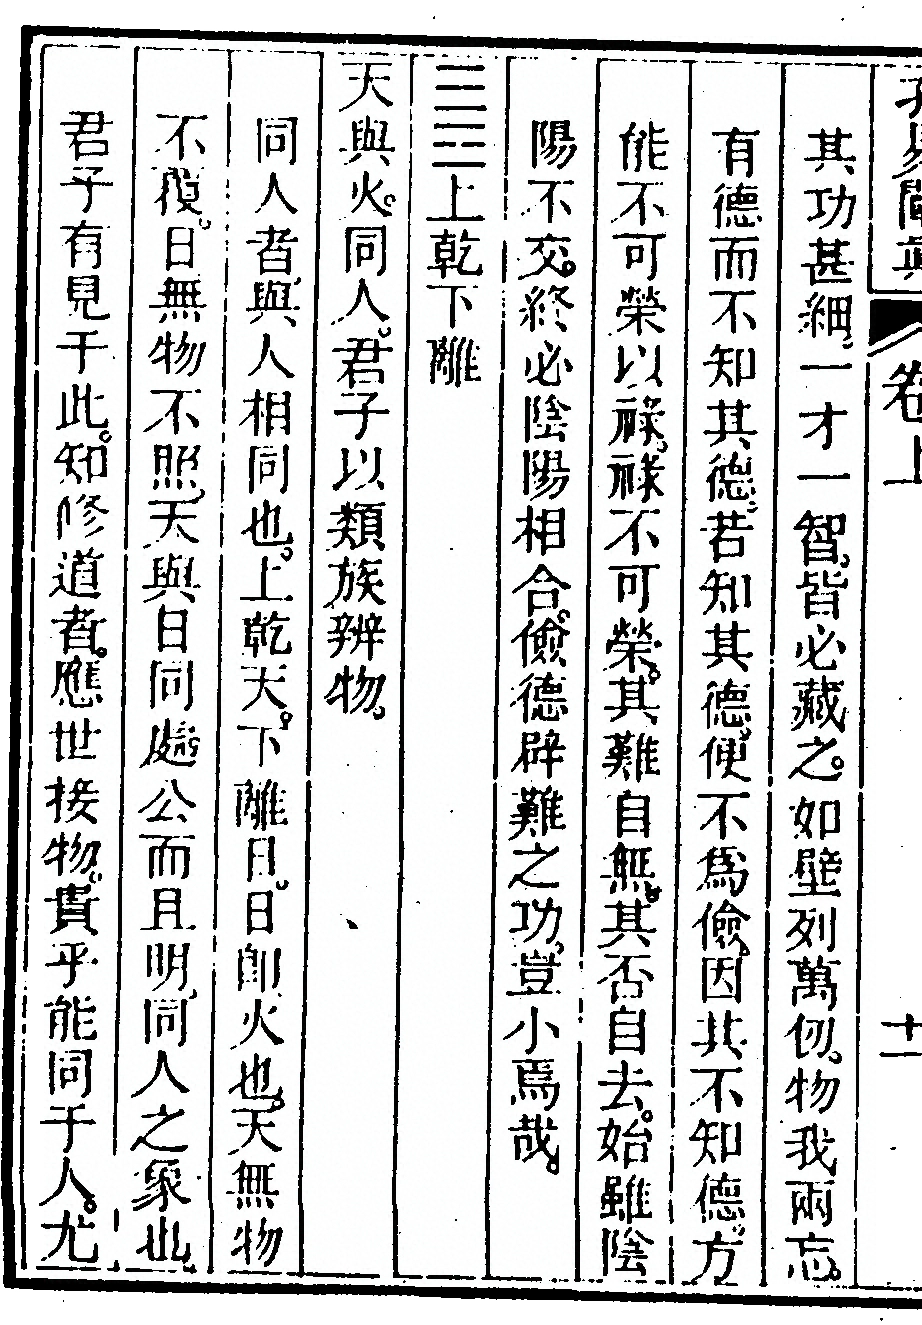 孔易闡真 卷上 十一
其功甚細。一才一智。皆必藏之。如壁列萬仞。物我兩忘。
有德而不知其德。若知其德。便不爲儉。因其不知德。方
能不可榮以祿。祿不可榮。其難自無。其否自去。始雖陰
陽不交。終必陰陽相合。儉德辟難之功。豈小焉哉。
☰☲上乾下離
天與火。同人。君子以類族辨物。
同人者。與人相同也。上乾天。下離日。日卽火也。天無物
不覆。日無物不照。天與日同處。公而且明。同人之象也。
君子有見于此。知修道者。應世接物。貴乎能同于人。尤